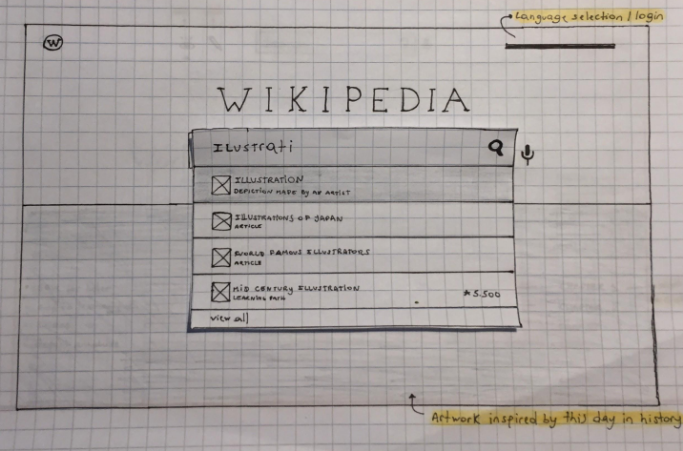 Language selection / login
W
WIKIPEDIA
ILustrati
ILLUSTRATION
DEPICTION MADE BY AN ARTIST
ILLUSTRATIONS OF JAPAN
ARTICLE
WORLD FAMOUS ILLUSTRATORS
ARTICLE
MID CENTURY ILLUSTRATION
LEARNING PATH
★5.500
view all
Artwork inspired by this day in history